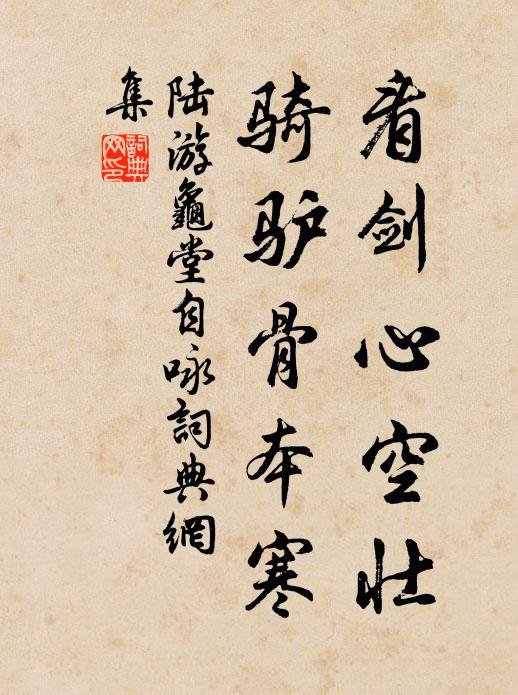 看剑心空壮
骑驴骨本寒
陆游龜堂自咏詞典網
集
詞典
网印